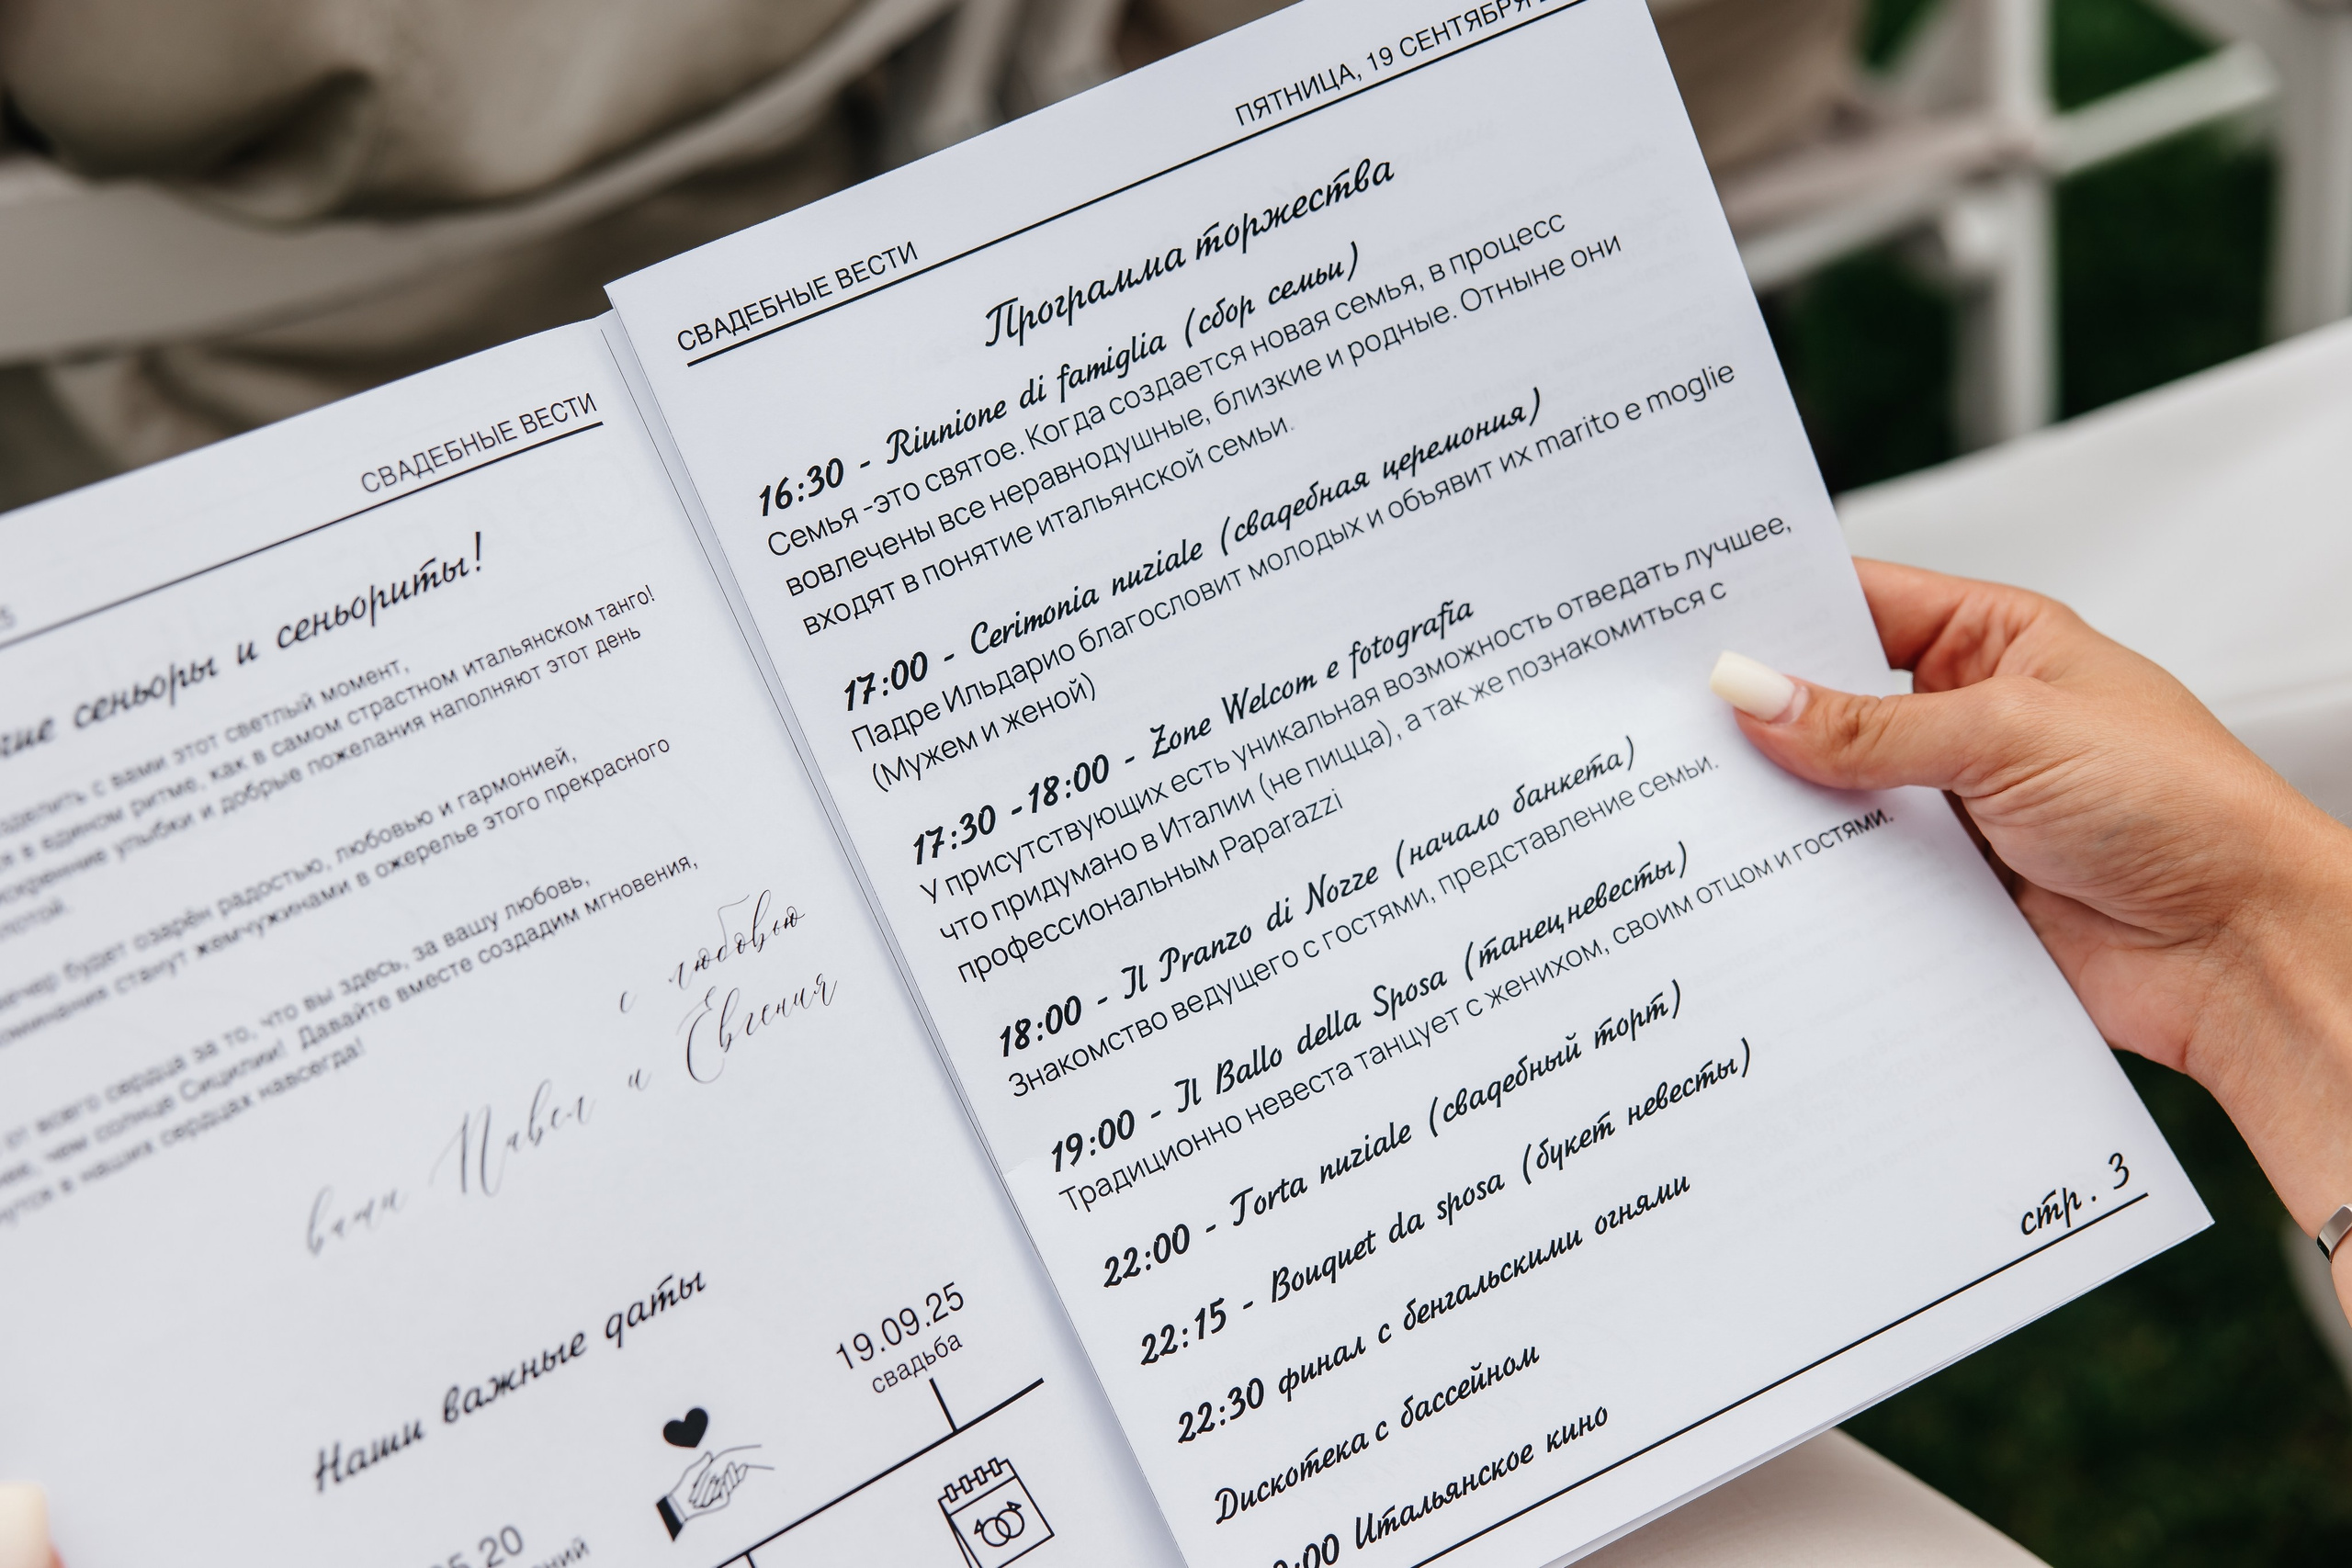 СВАДЕБНЫЕ ВЕСТИ
сеньоры и сеньориты!
с вами этот светлый момент,
в едином ритме, как в самом страстном итальянском танго!
искренние улыбки и добрые пожелания наполняют этот день
вечер будет озарён радостью, любовью и гармонией,
станут жемчужинами в ожерелье этого прекрасного
от всего сердца за то, что вы здесь, за вашу любовь,
чем солнце Сицилии! Давайте вместе создадим мгновения,
в наших сердцах навсегда!
с любовью
ваши Павел и Евгения
Наши важные даты
19.09.25
свадьба
СВАДЕБНЫЕ ВЕСТИ
ПЯТНИЦА, 19 СЕНТЯБРЯ
Программа торжества
16:30 - Riunione di famiglia (сбор семьи)
Семья -это святое. Когда создается новая семья, в процесс
вовлечены все неравнодушные, близкие и родные. Отныне они
входят в понятие итальянской семьи.
17:00 - Cerimonia nuziale (свадебная церемония)
Падре Ильдарио благословит молодых и объявит их marito e moglie
(Мужем и женой)
17:30 -18:00 - Zone Welcom e fotografia
У присутствующих есть уникальная возможность отведать лучшее,
что придумано в Италии (не пицца), а так же познакомиться с
профессиональным Paparazzi
18:00 - Il Pranzo di Nozze (начало банкета)
Знакомство ведущего с гостями, представление семьи.
19:00 - Il Ballo della Sposa (танец невесты)
Традиционно невеста танцует с женихом, своим отцом и гостями.
22:00 - Torta nuziale (свадебный торт)
22:15 - Bouquet da sposa (букет невесты)
22:30 финал с бенгальскими огнями
Дискотека с бассейном
Итальянское кино
стр. 3